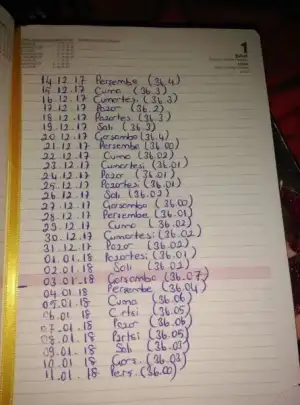 1
14.12.17 Perşembe (36.4)
15.12.17 Cuma (36.3)
16.12.17 Cumartesi (36.3)
17.12.17 Pazar (36.2)
18.12.17 Pazartes (36.3)
19.12.17 Salı (36.2)
20.12.17 Çarşamba (36.4)
21.12.17 Perşembe (36.00)
22.12.17 Cuma (36.02)
23.12.17 Cumartesi (36.01)
24.12.17 Pazar (36.01)
25.12.17 Pazartesi (36.01)
26.12.17 Salı (36.02)
27.12.17 Çarşamba (36.00)
28.12.17 Perşembe (36.01)
29.12.17 Cuma (36.02)
30.12.17 Cumartesi (36.02)
31.12.17 Pazar (36.02)
01.01.18 Pazartesi (36.01)
02.01.18 Salı (36.02)
03.01.18 Çarşamba (36.07)
04.01.18 Perşembe (36.04)
05.01.18 Cuma (36.06)
06.01.18 C.rtsi (36.05)
07.01.18 Pazar (36.06)
08.01.18 Pzrtsi (36.05)
09.01.18 Salı (36.03)
10.01.18 Çarş. (36.03)
11.01.18 Perş. (36.00)